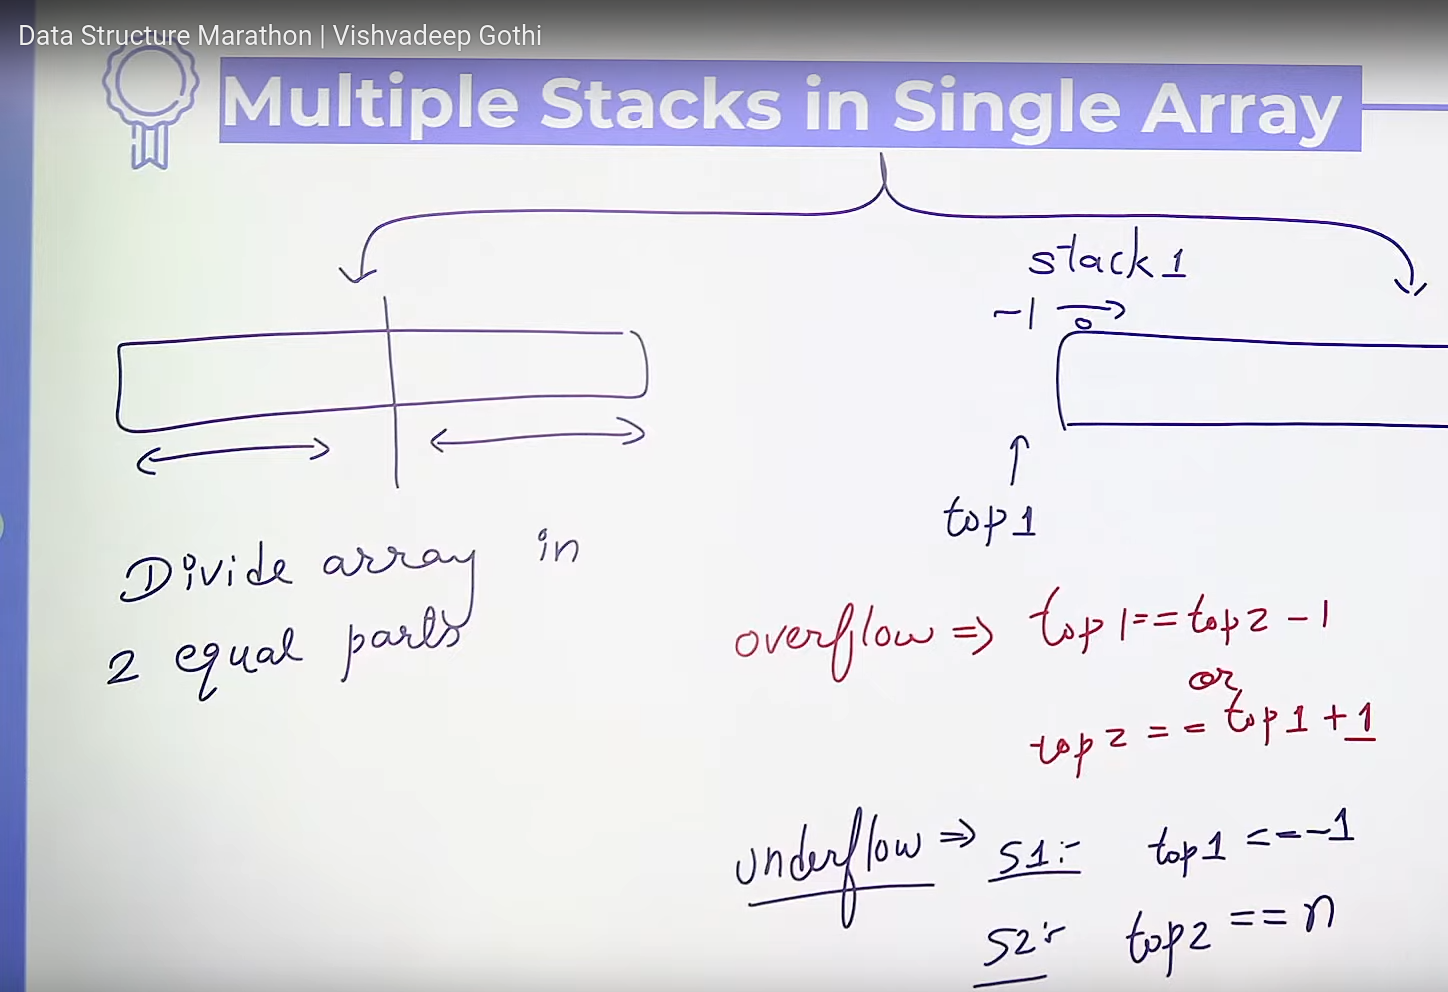 Data Structure Marathon | Vishvadeep Gothi
Multiple Stacks in Single Array
stack 1
-1
0
top 1
Divide array in
2 equal parts
overflow => top 1 == top 2 - 1
or
top 2 == top 1 + 1
underflow => S1:- top 1 == -1
S2:- top 2 == n